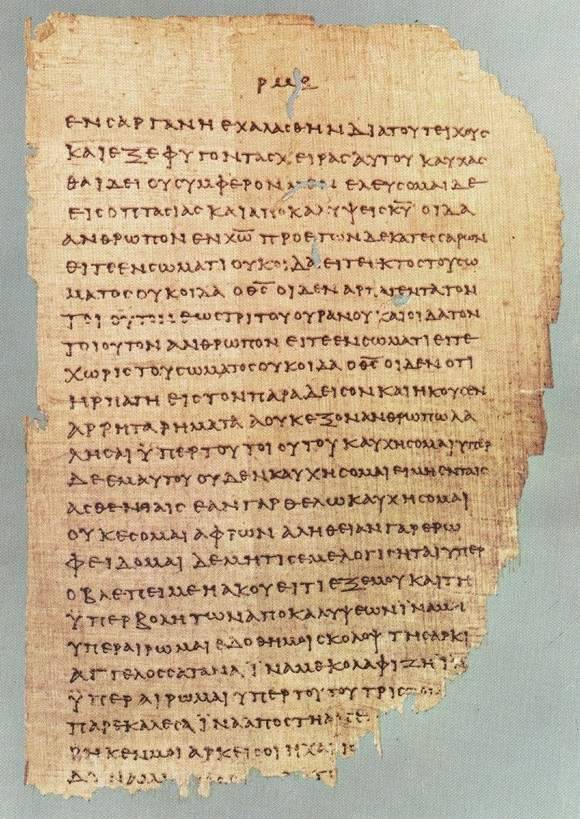 ΡΜΕ
ΕΝ ΣΑΡΓΑΝΗ ΕΧΑΛΑΣΘΗΝ ΔΙΑ ΤΟΥ ΤΕΙΧΟΥΣ
ΚΑΙ ΕΞΕΦΥΓΟΝ ΤΑΣ ΧΕΙΡΑΣ ΑΥΤΟΥ ΚΑΥΧΑΣ
ΘΑΙ ΔΕΙ ΟΥ ΣΥΜΦΕΡΟΝ ΕΛΕΥΣΟΜΑΙ ΔΕ
ΕΙΣ ΟΠΤΑΣΙΑΣ ΚΑΙ ΑΠΟΚΑΛΥΨΕΙΣ Κ̅Υ̅ ΟΙΔΑ
ΑΝΘΡΩΠΟΝ ΕΝ Χ̅Ω̅ ΠΡΟ ΕΤΩΝ ΔΕΚΑΤΕΣΣΑΡΩΝ
ΕΙΤΕ ΕΝ ΣΩΜΑΤΙ ΟΥΚ ΟΙΔΑ ΕΙΤΕ ΕΚΤΟΣ ΤΟΥ ΣΩ
ΜΑΤΟΣ ΟΥΚ ΟΙΔΑ Ο Θ̅Σ̅ ΟΙΔΕΝ ΑΡΠΑΓΕΝΤΑ ΤΟΝ
ΤΟΙΟΥΤΟΝ ΕΩΣ ΤΡΙΤΟΥ ΟΥΡΑΝΟΥ ΚΑΙ ΟΙΔΑ ΤΟΝ
ΤΟΙΟΥΤΟΝ ΑΝΘΡΩΠΟΝ ΕΙΤΕ ΕΝ ΣΩΜΑΤΙ ΕΙΤΕ
ΧΩΡΙΣ ΤΟΥ ΣΩΜΑΤΟΣ ΟΥΚ ΟΙΔΑ Ο Θ̅Σ̅ ΟΙΔΕΝ ΟΤΙ
ΗΡΠΑΓΗ ΕΙΣ ΤΟΝ ΠΑΡΑΔΕΙΣΟΝ ΚΑΙ ΗΚΟΥΣΕΝ
ΑΡΡΗΤΑ ΡΗΜΑΤΑ Α ΟΥΚ ΕΞΟΝ ΑΝΘΡΩΠΩ ΛΑ
ΛΗΣΑΙ ΫΠΕΡ ΤΟΥ ΤΟΙΟΥΤΟΥ ΚΑΥΧΗΣΟΜΑΙ ΥΠΕΡ
ΔΕ ΕΜΑΥΤΟΥ ΟΥΔΕΝ ΚΑΥΧΗΣΟΜΑΙ ΕΙ ΜΗ ΕΝ ΤΑΙΣ
ΑΣΘΕΝΕΙΑΙΣ ΕΑΝ ΓΑΡ ΘΕΛΩ ΚΑΥΧΗΣΟΜΑΙ
ΟΥΚ ΕΣΟΜΑΙ ΑΦΡΩΝ ΑΛΗΘΕΙΑΝ ΓΑΡ ΕΡΩ
ΦΕΙΔΟΜΑΙ ΔΕ ΜΗ ΤΙΣ ΕΜΕ ΛΟΓΙΣΗΤΑΙ ΥΠΕΡ
Ο ΒΛΕΠΕΙ ΜΕ Η ΑΚΟΥΕΙ ΤΙ ΕΞ ΕΜΟΥ ΚΑΙ ΤΗ
ΫΠΕΡΒΟΛΗ ΤΩΝ ΑΠΟΚΑΛΥΨΕΩΝ ΪΝΑ ΜΗ
ΥΠΕΡΑΙΡΩΜΑΙ ΕΔΟΘΗ ΜΟΙ ΣΚΟΛΟΨ ΤΗ ΣΑΡΚΙ
ΑΓΓΕΛΟΣ ΣΑΤΑΝΑ ΪΝΑ ΜΕ ΚΟΛΑΦΙΖΗ ΪΝΑ
ΫΠΕΡΑΙΡΩΜΑΙ ΥΠΕΡ ΤΟΥΤΟΥ ΤΡΙΣ
ΠΑΡΕΚΑΛΕΣΑ ΪΝΑ ΑΠΟΣΤΗ ΑΠ Ε
ΡΗΚΕΝ ΜΟΙ ΑΡΚΕΙ ΣΟΙ Η ΧΑΡΙΣ
ΔΥΝΑΜΙΣ